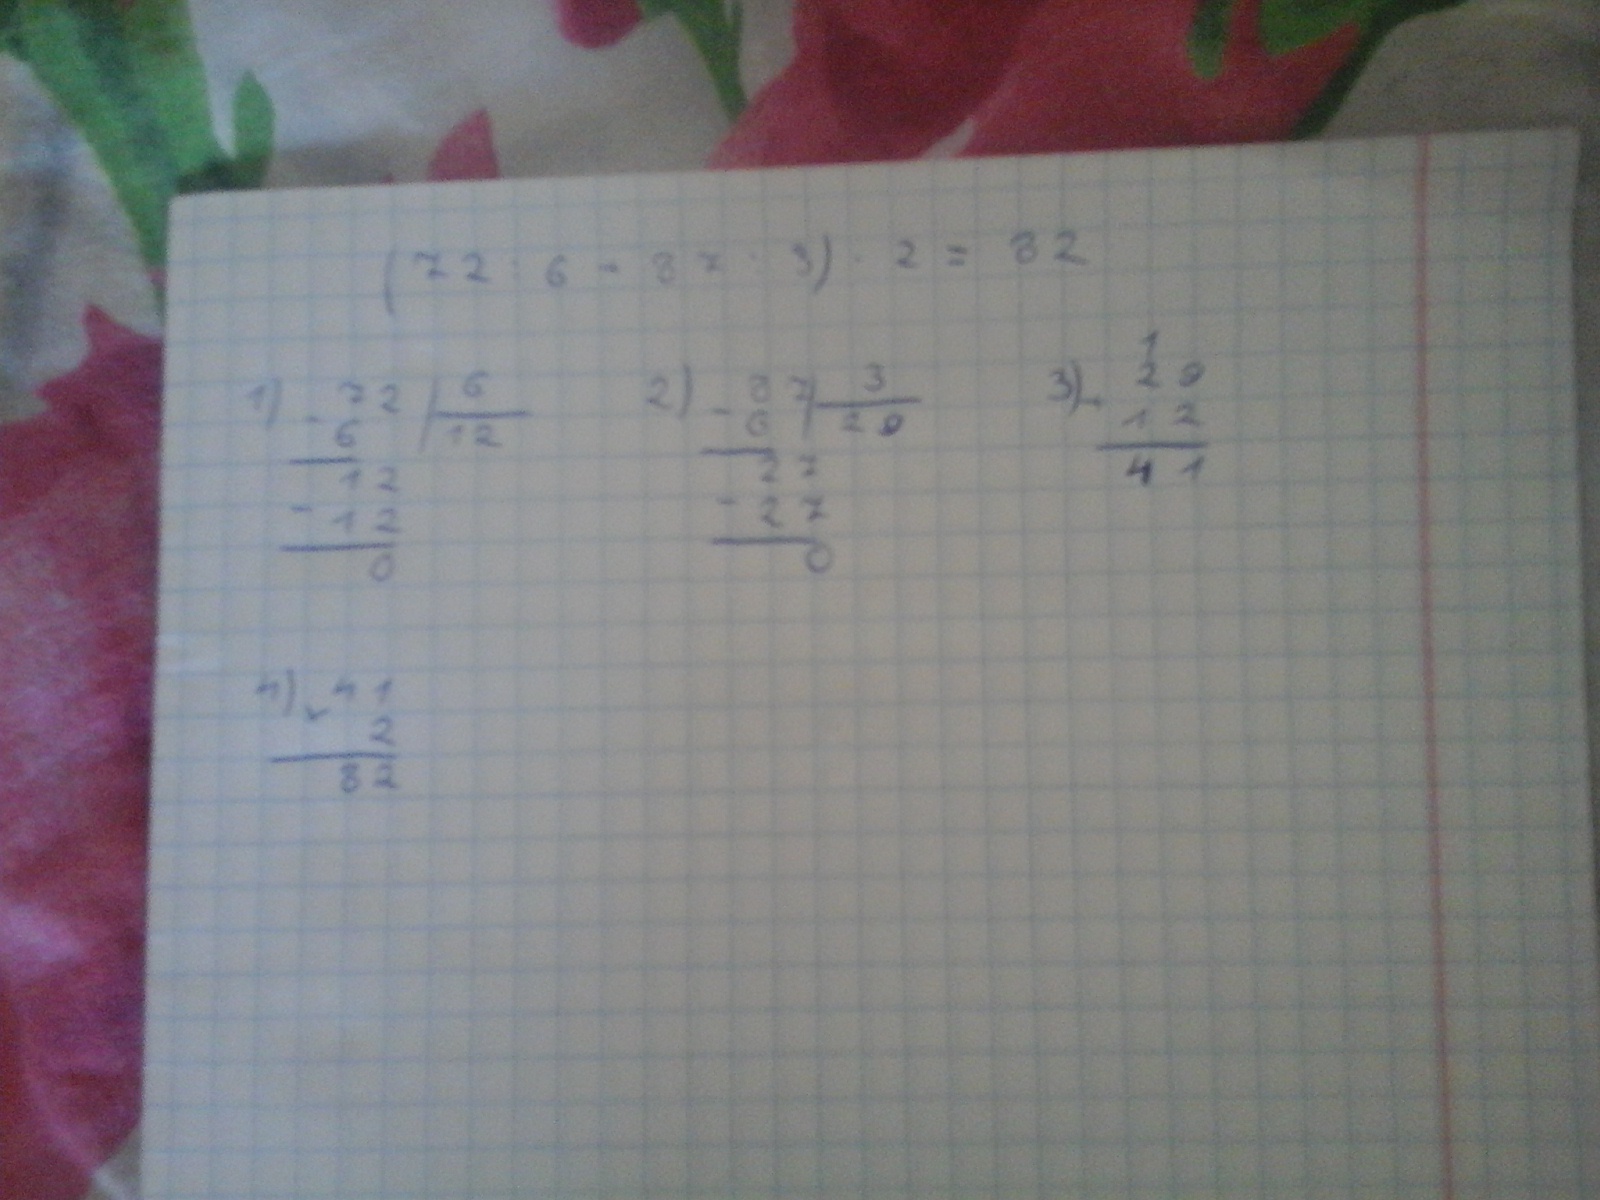 (72 : 6 + 87 : 3) · 2 = 82
1) - 72 | 6
6 | 12
12
- 12
0
2) - 87 | 3
6 | 29
27
- 27
0
3) + 29
1
12
41
4) × 41
2
82